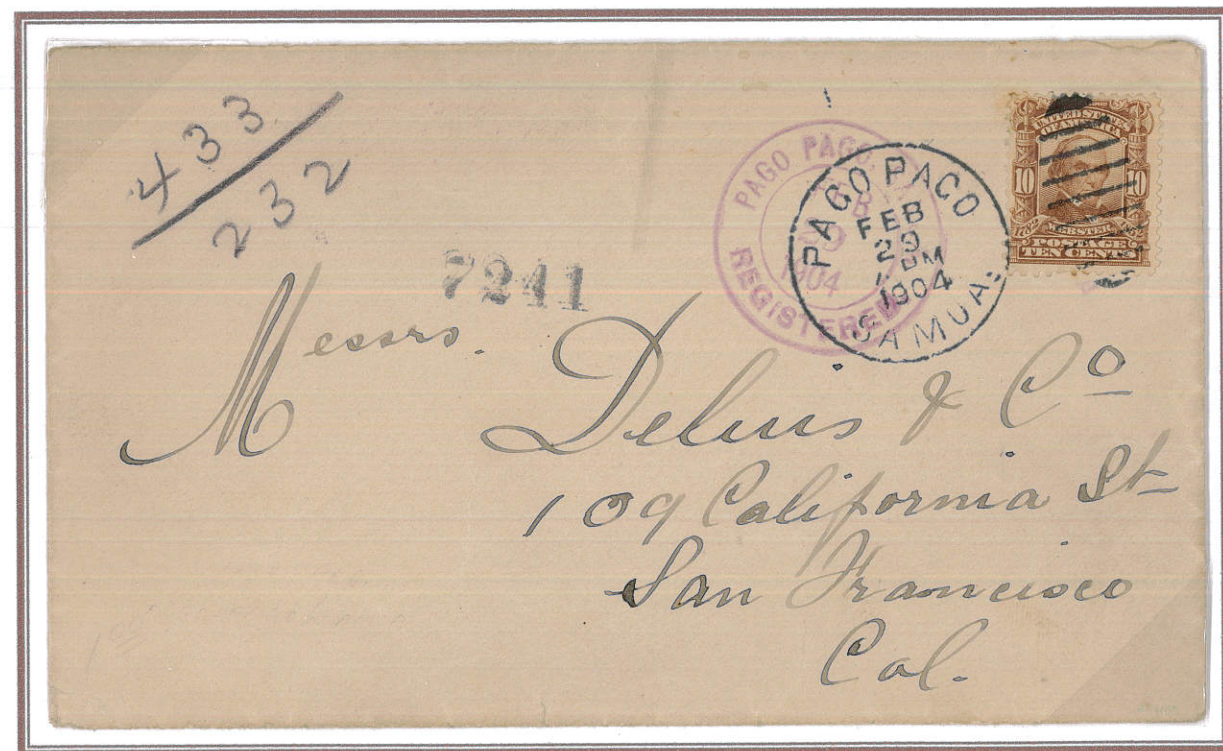 433
232
7241
PAGO PAGO
REGISTERED
1904
PAGO PAGO
FEB
29
PM
1904
SAMOA.
UNITED STATES
OF AMERICA
10 10
WEBSTER
POSTAGE
TEN CENTS
Messrs. Delius & Co
109 California St
San Francisco
Cal.